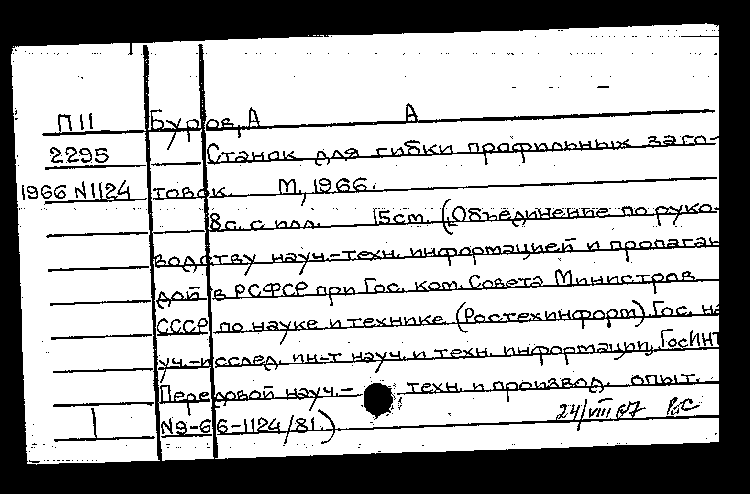 П11 Буров, А А
2295 Станок для гибки профильных заго-
1966 N1124 товок. М., 1966.
8 с. с илл. 15см. (Объединение по руко-
водству науч.-техн. информацией и пропаган-
дой в РСФСР при Гос. ком. Совета Министров
СССР по науке и технике (Ростехинформ) Гос. на-
уч.-исслед. ин-т науч. и техн. информации, ГосИНТИ
Передовой науч.- техн. и производ. опыт.
N9-66-1124/81.)
24/VIII 67